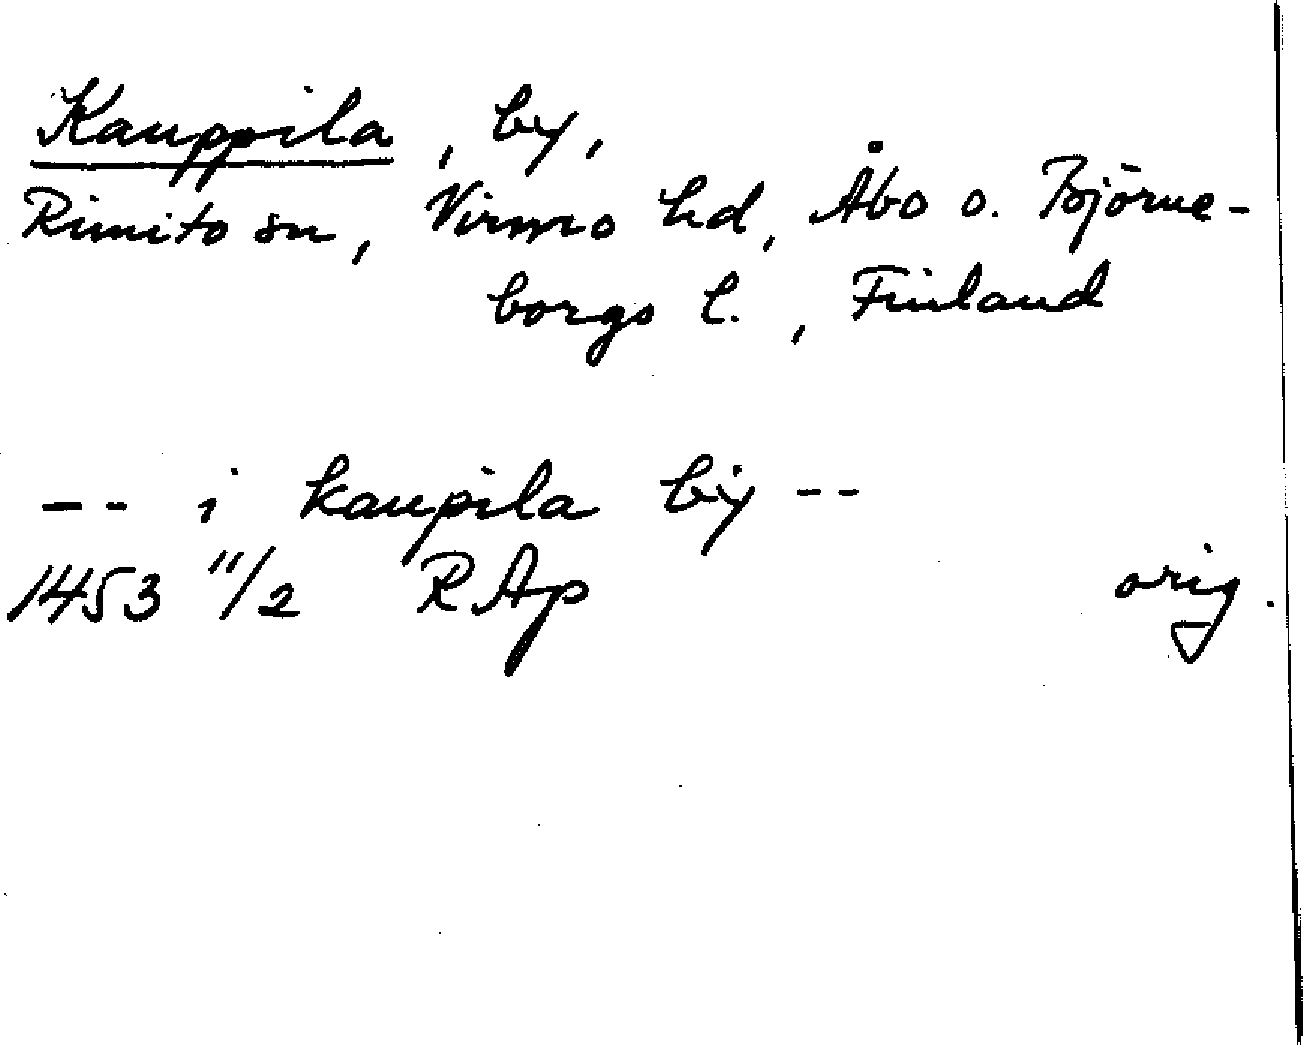 Kauppila, by,
Rimito sn, Virmo hd, Åbo o. Björne-
borgs l., Finland
-- i kaupila bÿ --
1453 11/2 RAp orig.